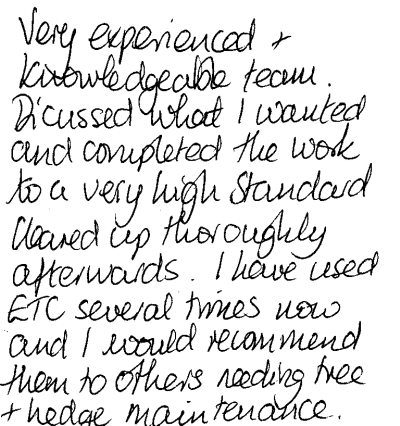 Very experienced +
Knowledgeable team.
Dicussed what I wanted
and completed the work
to a very high standard
Cleaned up thoroughly
afterwards. I have used
ETC several times now
and I would recommend
them to others needing tree
+ hedge maintenance.